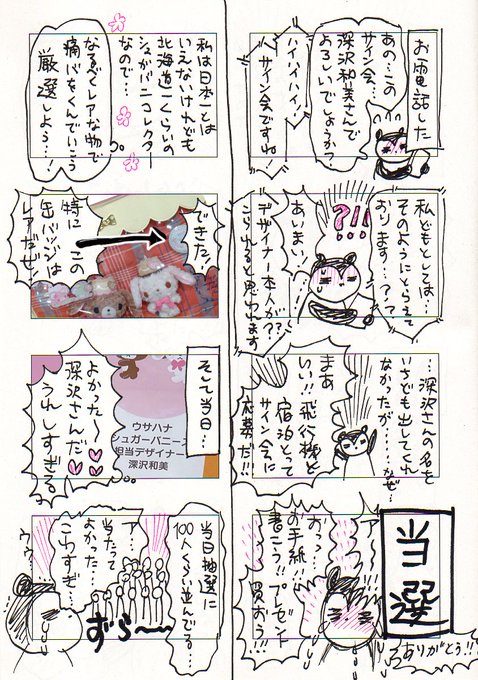 お電話した
あの…この
サイン会…
深沢和美さんで
よろしいでしょうか?
ハイハイハイ!
サイン会ですね!
私どもとしては…
そのようにとらえて
おります…?…?
?!!
あいまい!
デザイナー本人が?
こられると思われます
…深沢さんの名を
いちども出してくれ
なかったが……なぜ…
まあ
いい!!飛行機と
宿泊とって
サイン会に
応募だ!!!
当選
ありがとう!!
ア…
おっ…
お手紙!!
書こう!!プレゼント
買おう!!!
私は日本一とは
いえないけれども
北海道一くらいの
シュガバニコレクター
なので…
なるべくレアな物で
痛バをくんでいこう
厳選しよう…!
できた!
特に
この
缶バッジは
レアだぜ!
そして当日…
よかった〜
深沢さんだ
うれしすぎる
ウサハナ
シュガーバニーズ
担当デザイナー
深沢和美
当日抽選に
100人くらい並んでる…
ア…
当たって
よかった…
こわすぎ…
ずら〜〜
ウゥ